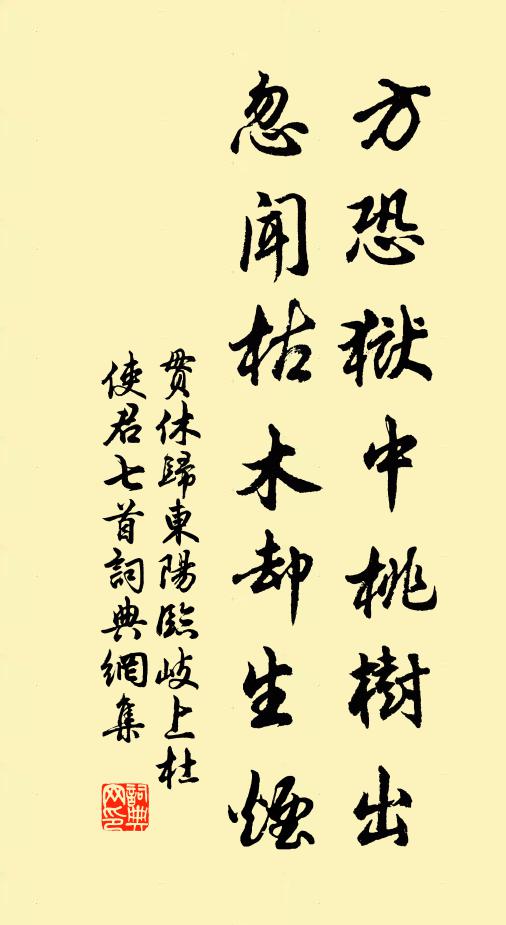 方恐獄中桃樹出
忽聞枯木却生煙
貫休歸東陽臨岐上杜
使君七首詞典網集
詞典
网印